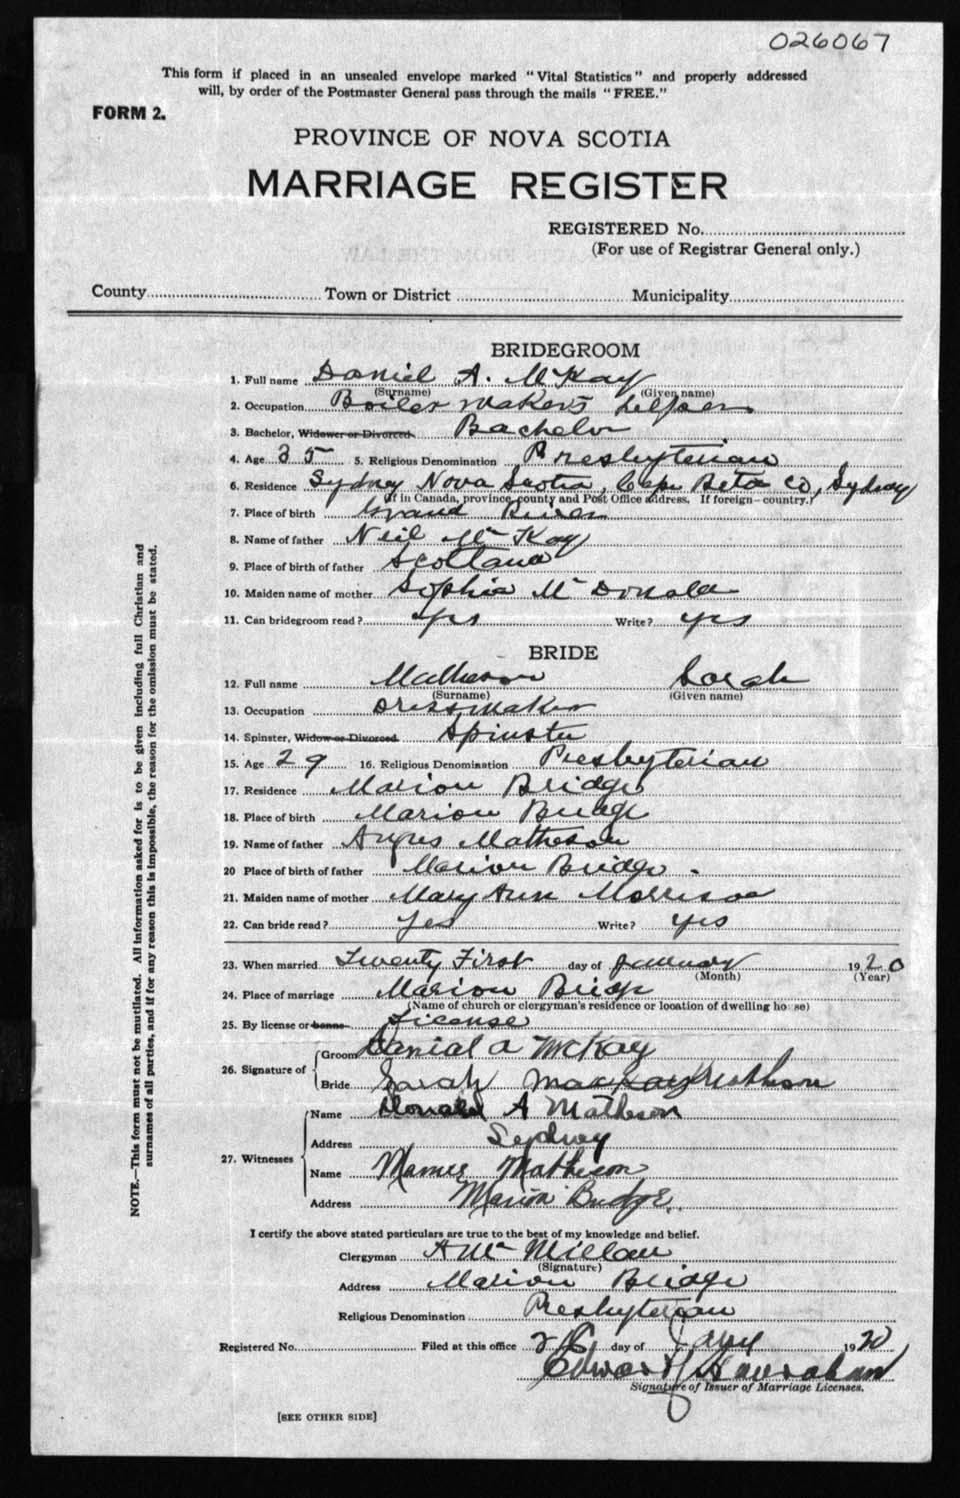 026067
This form if placed in an unsealed envelope marked "Vital Statistics" and properly addressed
will, by order of the Postmaster General pass through the mails "FREE."
FORM 2.
PROVINCE OF NOVA SCOTIA
MARRIAGE REGISTER
REGISTERED No.
(For use of Registrar General only.)
County Town or District Municipality
BRIDEGROOM
1. Full name Daniel A. McKay
(Surname) (Given name)
2. Occupation Boiler makers helper
3. Bachelor, Widower or Divorced Bachelor
4. Age 35 5. Religious Denomination Presbyterian
6. Residence Sydney Nova Scotia, Cape Beton Co, Sydney
(If in Canada, province, county and Post Office address. If foreign—country.)
7. Place of birth Grand River
8. Name of father Neil McKay
9. Place of birth of father Scotland
10. Maiden name of mother Sophia McDonald
11. Can bridegroom read? yes Write? yes
BRIDE
12. Full name Matheson Sarah
(Surname) (Given name)
13. Occupation Dressmaker
14. Spinster, Widow or Divorced Spinster
15. Age 29 16. Religious Denomination Presbyterian
17. Residence Marion Bridge
18. Place of birth Marion Bridge
19. Name of father Angus Matheson
20 Place of birth of father Marion Bridge
21. Maiden name of mother Mary Ann Morrison
22. Can bride read? Yes Write? yes
23. When married Twenty First day of January 1920
(Month) (Year)
24. Place of marriage Marion Bridge
(Name of church or clergyman's residence or location of dwelling house)
25. By license or banns License
26. Signature of Groom Danial A McKay
Bride Sarah Mackay Mathson
27. Witnesses Name Donald A Matheson
Address Sydney
Name Mamie Matheson
Address Marion Bridge.
I certify the above stated particulars are true to the best of my knowledge and belief.
Clergyman A McMillan
(Signature)
Address Marion Bridge
Religious Denomination Presbyterian
Registered No. Filed at this office day of Jany 1920
Edward
Signature of Issuer of Marriage Licenses.
[SEE OTHER SIDE]
NOTE.—This form must not be mutilated. All information asked for is to be given including full Christian and
surnames of all parties, and if for any reason this is impossible, the reason for the omission must be stated.